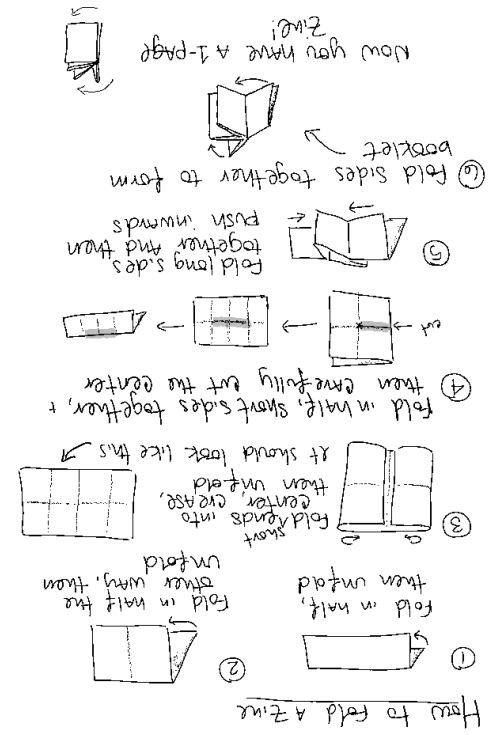 How to fold a zine
① Fold in half,
then unfold
② Fold in half the
other way, then
unfold
③ Fold short ends into
center, crease,
then unfold
it should look like this
④ Fold in half, short sides together, +
then carefully cut the center
cut
⑤ Fold long sides
together and then
push inwards
⑥ Fold sides together to form
booklet
Now you have a 1-page
zine!